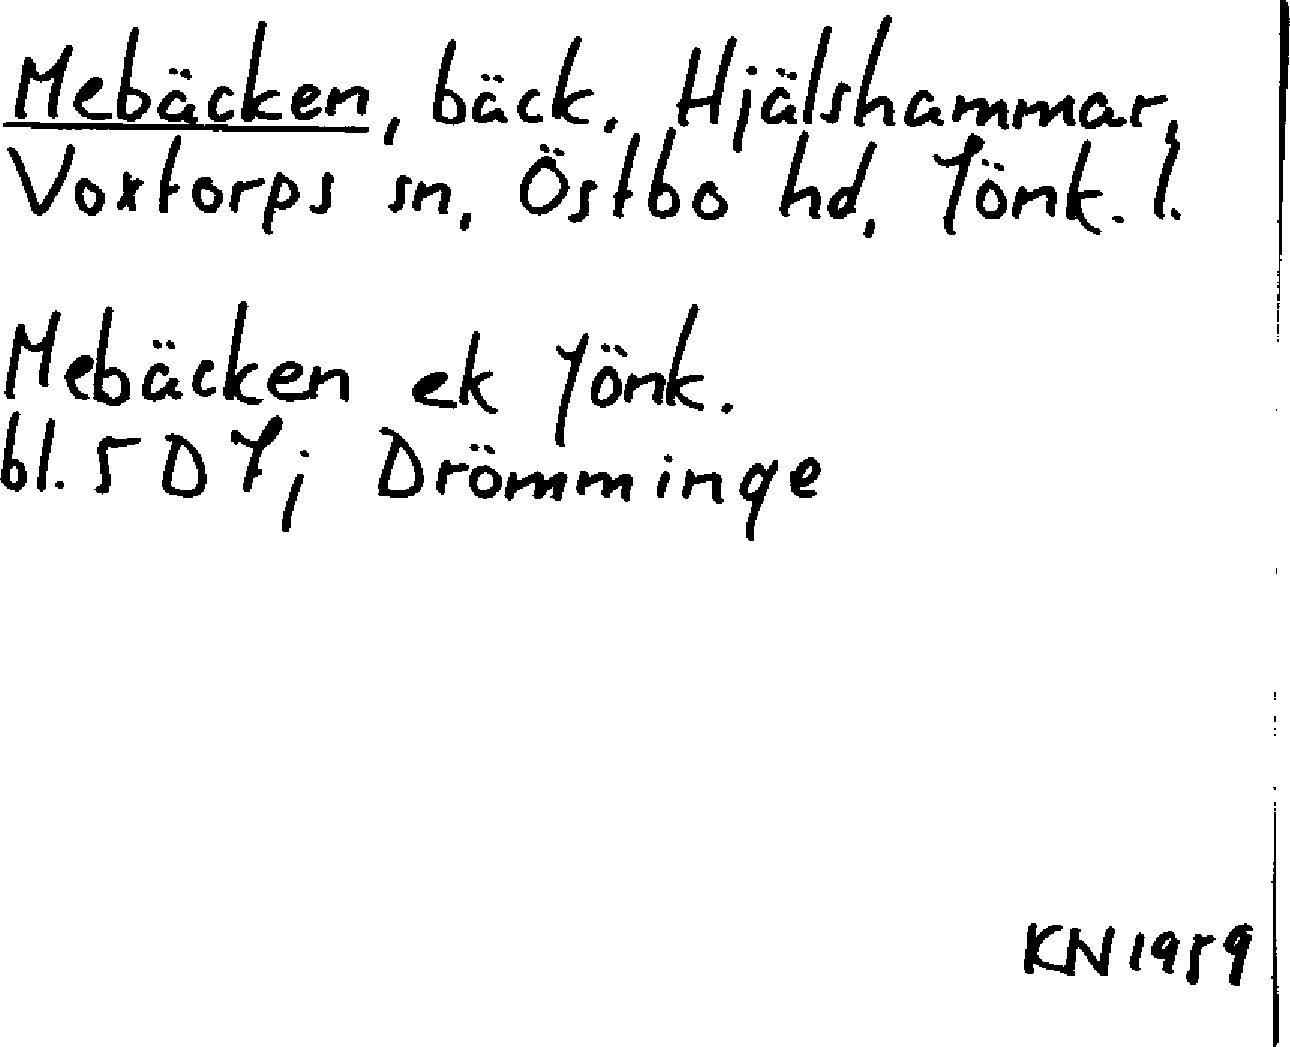 Mebäcken, bäck, Hjälshammar,
Voxtorps sn, Östbo hd, Jönk. l.
Mebäcken ek Jönk.
bl. 5 D 7 j Drömminge
KN 1959